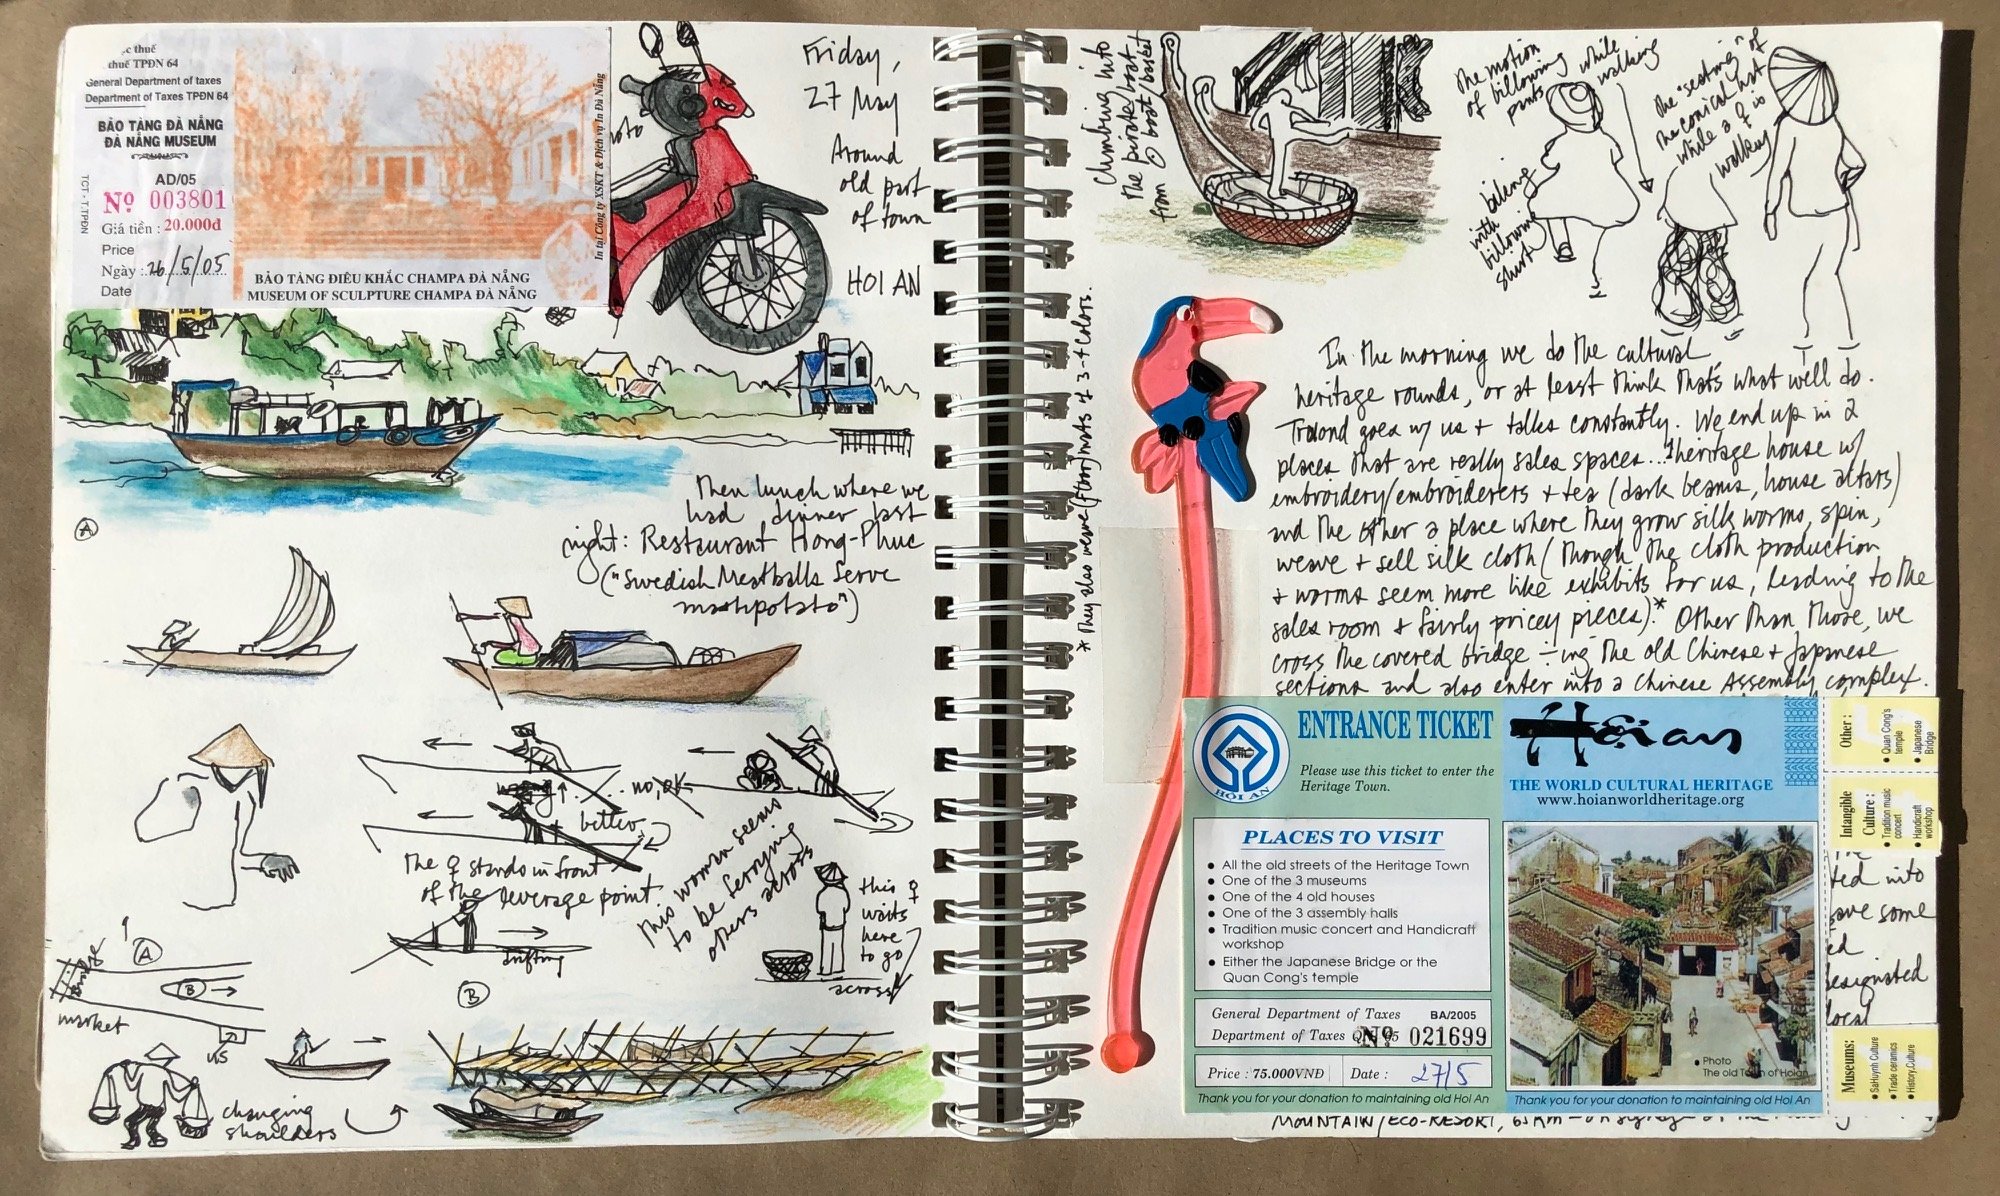 c thuế
thuế TPĐN 64
General Department of taxes
Department of Taxes TPĐN 64
BẢO TÀNG ĐÀ NẴNG
ĐÀ NẴNG MUSEUM
AD/05
Nº 003801
Giá tiền : 20.000đ
Price
Ngày : 26/5/05
Date
TCT - T.TPĐN
BẢO TÀNG ĐIÊU KHẮC CHAMPA ĐÀ NẴNG
MUSEUM OF SCULPTURE CHAMPA ĐÀ NẴNG
In tại Công ty XSKT & Dịch vụ In Đà Nẵng
Friday,
27 May
Around
old part
of town
HOI AN
A
Then lunch where we
had dinner last
night: Restaurant Hong-Phuc
("Swedish Meatballs Serve
mashpotato")
wrong ↑ ...... no, ok
better
The ♀ stands in front
of the leverage point.
This woman seems
to be ferrying
others across
drifting
this ♀
waits
here
to go
across
A
B
Bridge
market
us
B
changing
shoulders
Climbing into
the pirate boat
from boat/basket
The motion
of billowing
pants while
walking
The "seating" of
the conical hat
while a ♀ is
walking
biking
with
billowing
shirt
* They also weave (floor) mats of 3-4 colors.
In the morning we do the cultural
heritage rounds, or at least think that's what we'll do.
goes w/ us + talks constantly. We end up in 2
places that are really sales spaces... 1 heritage house w/
embroidery/embroiderers + tea (dark beams, house altars)
and the other a place where they grow silk worms, spin,
weave + sell silk cloth (though the cloth production
+ worms seem more like exhibits for us, leading to the
sales room + fairly pricey pieces).* Other than those, we
cross the covered bridge ÷ing the old Chinese + Japanese
sections and also enter into a Chinese Assembly complex.
ENTRANCE TICKET
Please use this ticket to enter the
Heritage Town.
HOI AN
PLACES TO VISIT
• All the old streets of the Heritage Town
• One of the 3 museums
• One of the 4 old houses
• One of the 3 assembly halls
• Tradition music concert and Handicraft
workshop
• Either the Japanese Bridge or the
Quan Cong's temple
General Department of Taxes BA/2005
Department of Taxes Nº 021699
Price : 75.000VNĐ Date : 27/5
Thank you for your donation to maintaining old Hoi An
Hội an
THE WORLD CULTURAL HERITAGE
www.hoianworldheritage.org
• Photo
The old Town of Hoian
Thank you for your donation to maintaining old Hoi An
Other :
• Quan Cong's
temple
• Japanese
Bridge
Intangible
Culture :
• Tradition music
concert
• Handicraft
workshop
Museums:
• SaHuynh Culture
• Trade ceramics
• History, Culture
ted into
some
designated
local
MOUNTAIN/ECO-RESORT,